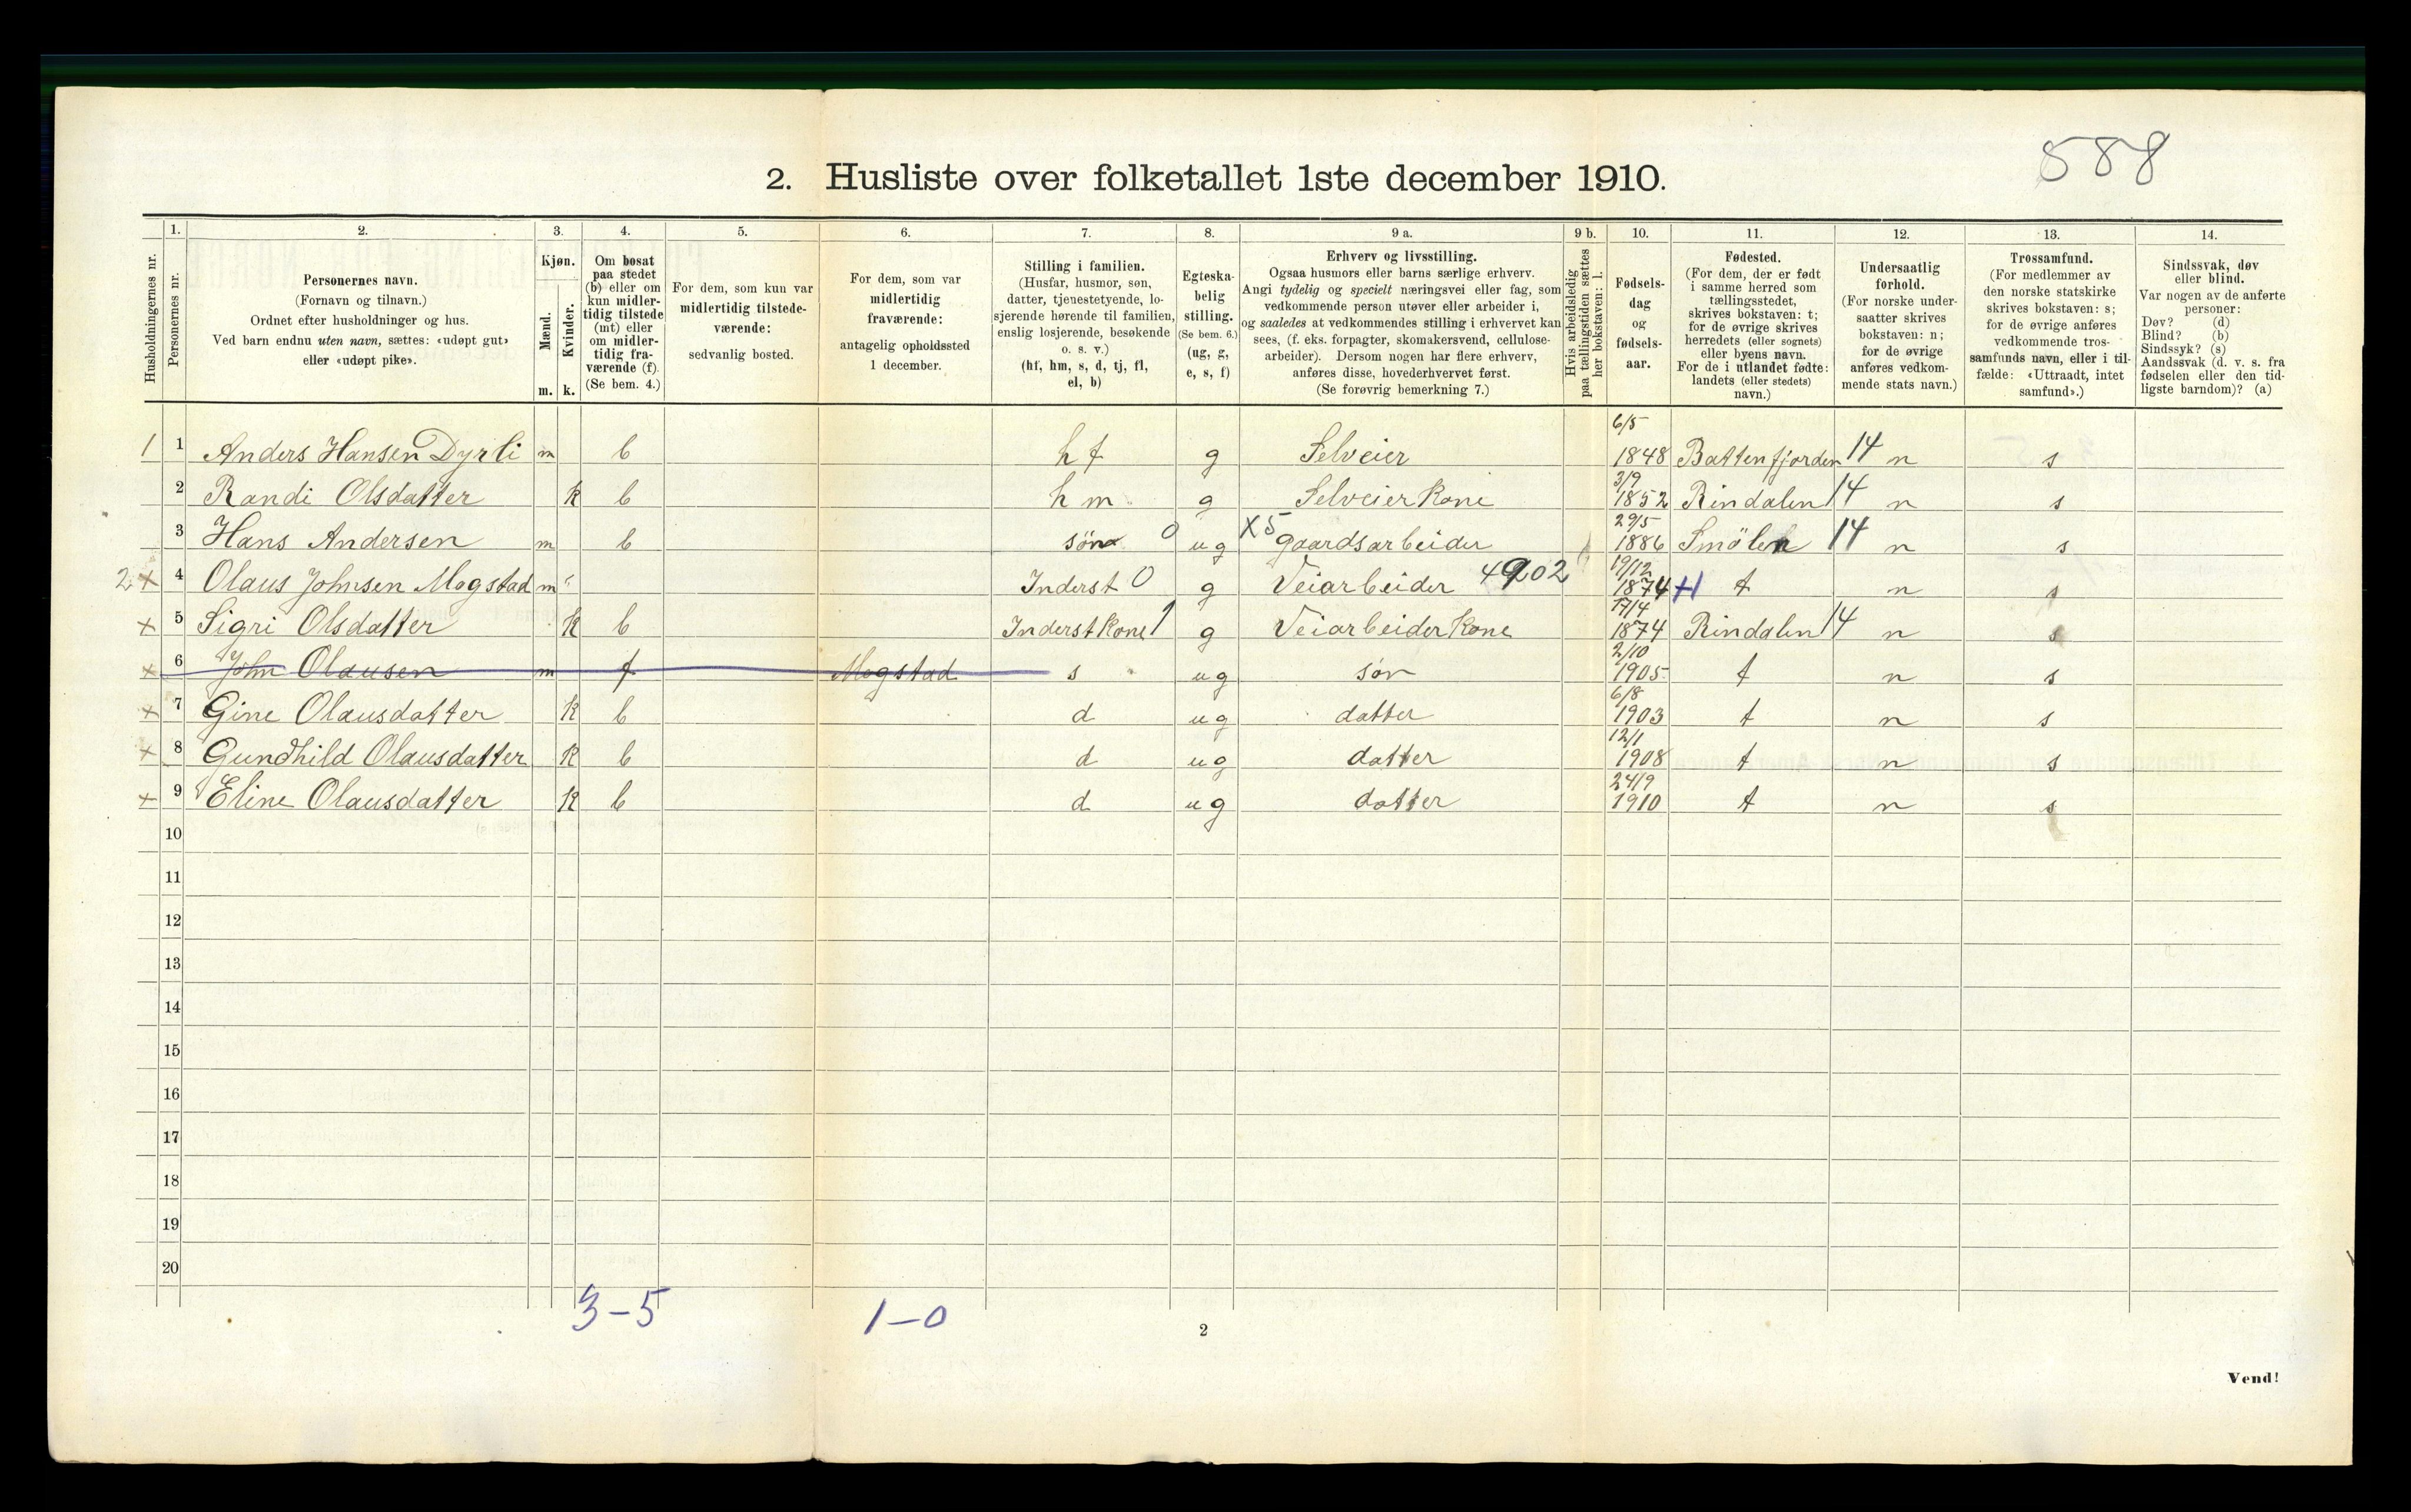 588
2. Husliste over folketallet 1ste december 1910.
Husholdningernes nr.
1. Personernes nr.
2. Personernes navn. (Fornavn og tilnavn.) Ordnet efter husholdninger og hus. Ved barn endnu uten navn, sættes: «udøpt gut» eller «udøpt pike».
3. Kjøn. Mænd. m. Kvinder. k.
4. Om bosat paa stedet (b) eller om kun midlertidig tilstede (mt) eller om midlertidig fraværende (f). (Se bem. 4.)
5. For dem, som kun var midlertidig tilstedeværende: sedvanlig bosted.
6. For dem, som var midlertidig fraværende: antagelig opholdssted 1 december.
7. Stilling i familien. (Husfar, husmor, søn, datter, tjenestetyende, losjerende hørende til familien, enslig losjerende, besøkende o. s. v.) (hf, hm, s, d, tj, fl, el, b)
8. Egteskabelig stilling. (Se bem. 6.) (ug, g, e, s, f)
9 a. Erhverv og livsstilling. Ogsaa husmors eller barns særlige erhverv. Angi tydelig og specielt næringsvei eller fag, som vedkommende person utøver eller arbeider i, og saaledes at vedkommendes stilling i erhvervet kan sees, (f. eks. forpagter, skomakersvend, cellulosearbeider). Dersom nogen har flere erhverv, anføres disse, hovederhvervet først. (Se forøvrig bemerkning 7.)
9 b. Hvis arbeidsledig paa tællingstiden sættes her bokstaven: l.
10. Fødselsdag og fødselsaar.
11. Fødested. (For dem, der er født i samme herred som tællingsstedet, skrives bokstaven: t; for de øvrige skrives herredets (eller sognets) eller byens navn. For de i utlandet fødte: landets (eller stedets) navn.)
12. Undersaatlig forhold. (For norske undersaatter skrives bokstaven: n; for de øvrige anføres vedkommende stats navn.)
13. Trossamfund. (For medlemmer av den norske statskirke skrives bokstaven: s; for de øvrige anføres vedkommende trossamfunds navn, eller i tilfælde: «Uttraadt, intet samfund».)
14. Sindssvak, døv eller blind. Var nogen av de anførte personer: Døv? (d) Blind? (b) Sindssyk? (s) Aandssvak (d. v. s. fra fødselen eller den tidligste barndom)? (a)
1 1 Anders Hansen Dyrli m b hf g Selveier 6/5 1848 Battenfjorden 14 n s
2 Randi Olsdatter k b hm g Selveier Kone 3/9 1852 Rindalen 14 n s
3 Hans Andersen m b søn 0 ug X5 gaardsarbeider 29/5 1886 Smölen 14 n s
2 x 4 Olaus Johnsen Mogstad m Inderst 0 g Veiarbeider 4902 19/12 1874 H t n s
x 5 Sigri Olsdatter k b Inderst Kone 1 g Veiarbeider Kone 17/4 1874 Rindalen 14 n s
x 6 John Olausen m f Mogstad s ug søn 2/10 1905 t n s
x 7 Gine Olausdatter k b d ug datter 6/8 1903 t n s
x 8 Gundhild Olausdatter k b d ug datter 12/1 1908 t n s
x 9 Eline Olausdatter k b d ug datter 24/9 1910 t n s
10
11
12
13
14
15
16
17
18
19
20
3-5 1-0
2
Vend!